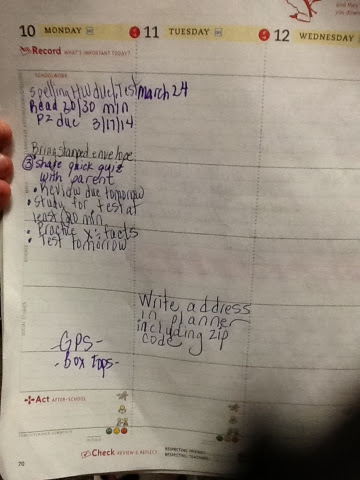 10 MONDAY
11 TUESDAY
12 WEDNESDAY
Record WHAT'S IMPORTANT TODAY?
SCHOOLWORK
Spelling HW due/Test March 24
Read 20/30 min
P2 due 3/17/14
Bring stamped envelope
③ share quick quiz
with parent
• Review due tomorrow
• Study for test at
least 20 min
• Practice X÷ facts
• Test tomorrow
Write address
in planner
including zip
code
-GPS-
- Box Tops-
Act AFTER-SCHOOL
70
Check REVIEW & REFLECT
RESPECTING MYSELF
RESPECTING TEACHERS